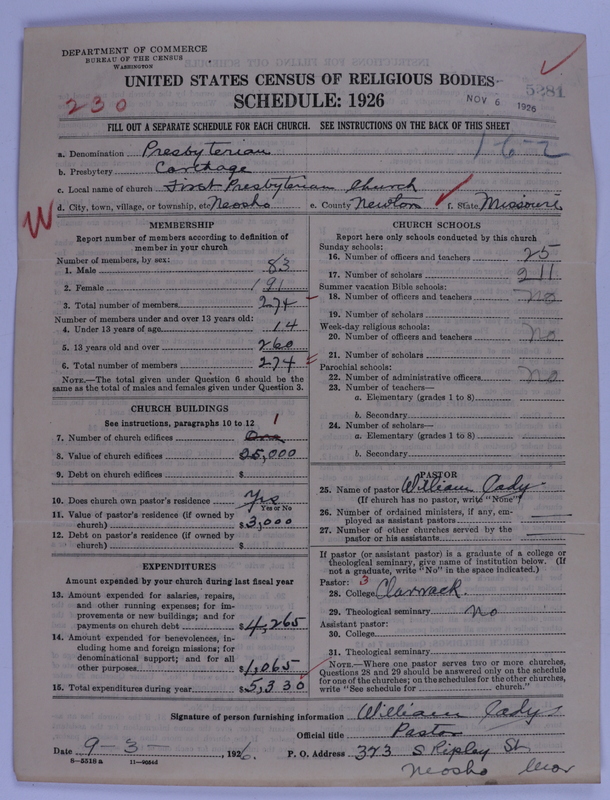 DEPARTMENT OF COMMERCE
BUREAU OF THE CENSUS
WASHINGTON
UNITED STATES CENSUS OF RELIGIOUS BODIES
SCHEDULE: 1926
230
NOV 6 1926
5281
FILL OUT A SEPARATE SCHEDULE FOR EACH CHURCH. SEE INSTRUCTIONS ON THE BACK OF THIS SHEET
1-6-2
a. Denomination Presbyterian
b. Presbytery Carthage
c. Local name of church First Presbyterian Church
d. City, town, village, or township, etc Neosho e. County Newton f. State Missouri
W
MEMBERSHIP
Report number of members according to definition of
member in your church
Number of members, by sex:
1. Male 83
2. Female 191
3. Total number of members 274
Number of members under and over 13 years old:
4. Under 13 years of age 14
5. 13 years old and over 260
6. Total number of members 274
NOTE.—The total given under Question 6 should be
same as the total of males and females given under Question 3.
CHURCH BUILDINGS
See instructions, paragraphs 10 to 12
7. Number of church edifices One 1
8. Value of church edifices 25,000
9. Debt on church edifices $
10. Does church own pastor's residence Yes
Yes or No
11. Value of pastor's residence (if owned by
church) $3,000
12. Debt on pastor's residence (if owned by
church) $
EXPENDITURES
Amount expended by your church during last fiscal year
13. Amount expended for salaries, repairs,
and other running expenses; for im-
provements or new buildings; and for
payments on church debt $4,265
14. Amount expended for benevolences, in-
cluding home and foreign missions; for
denominational support; and for all
other purposes $1,065
15. Total expenditures during year $5,330
CHURCH SCHOOLS
Report here only schools conducted by this church
Sunday schools:
16. Number of officers and teachers 25
17. Number of scholars 211
Summer vacation Bible schools:
18. Number of officers and teachers no
19. Number of scholars
Week-day religious schools:
20. Number of officers and teachers no
21. Number of scholars
Parochial schools:
22. Number of administrative officers no
23. Number of teachers—
a. Elementary (grades 1 to 8)
b. Secondary
24. Number of scholars—
a. Elementary (grades 1 to 8)
b. Secondary
PASTOR
25. Name of pastor William Cady
(If church has no pastor, write "None")
26. Number of ordained ministers, if any, em-
ployed as assistant pastors
27. Number of other churches served by the
pastor or his assistants
If pastor (or assistant pastor) is a graduate of a college or
theological seminary, give name of institution below. (If
not a graduate, write "No" in the space indicated.)
Pastor: 3
28. College
29. Theological seminary No
Assistant pastor:
30. College
31. Theological seminary
NOTE.—Where one pastor serves two or more churches,
Questions 28 and 29 should be answered only on the schedule
for one of the churches; on the schedules for the other churches,
write "See schedule for church."
Signature of person furnishing information William Cady
Official title Pastor
Date 9-3-, 1926. P. O. Address 323 S Ripley St
8—5518 a
Neosho